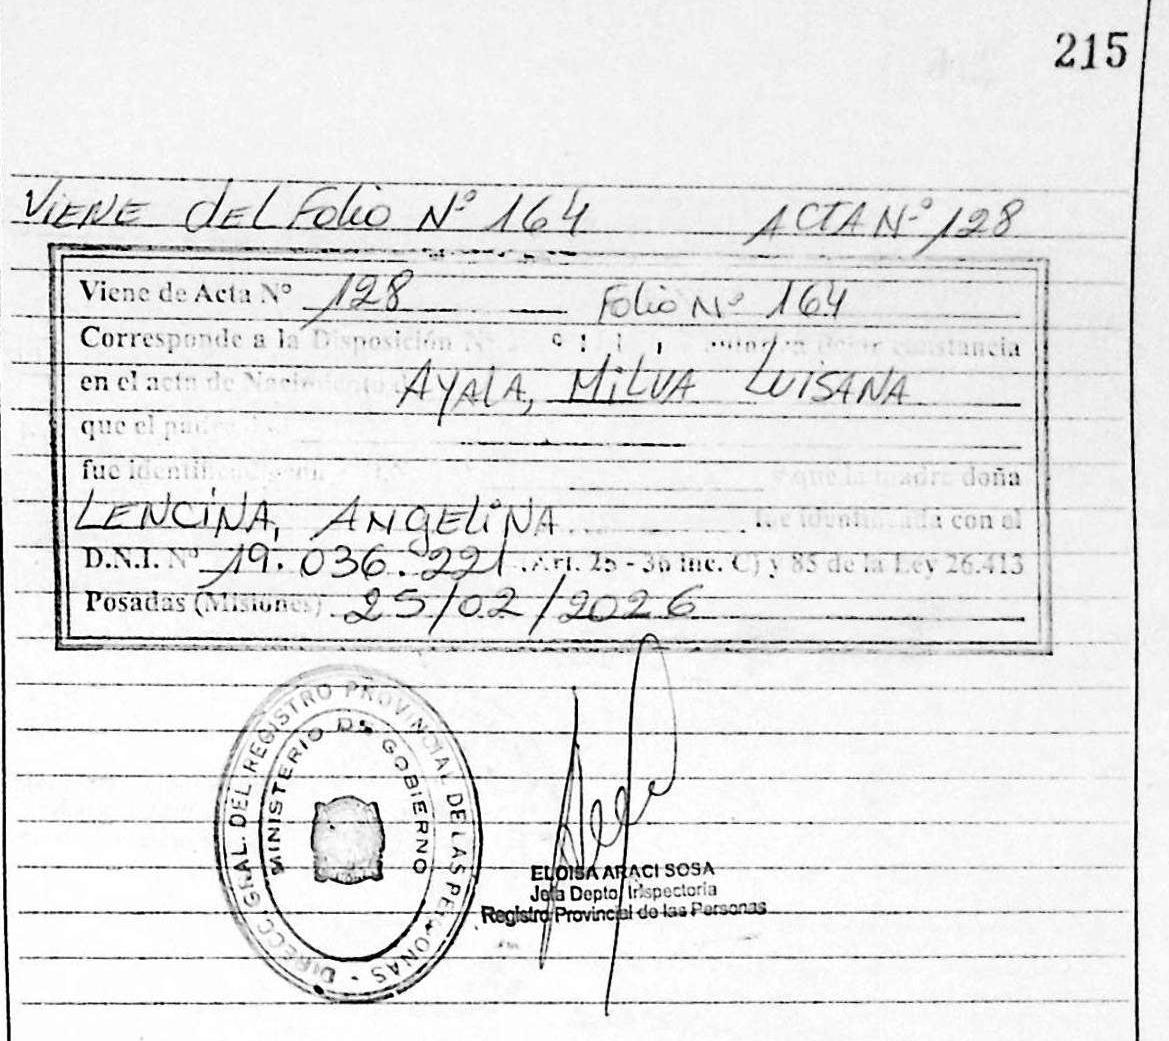 215
VIENE DEL Folio Nº 164 ACTA Nº 128
Viene de Acta Nº 128 Folio Nº 164
Corresponde a la Disposición Nº dejar constancia
en el acta de Nacimiento de AYALA, MILVA LUISANA
que el padre
fue identificado con y que la madre doña
LENCINA, ANGELINA fue identificada con el
D.N.I. Nº 19.036.221 .Art. 25 - 36 inc. C) y 85 de la Ley 26.413
Posadas (Misiones) 25/02/2026
DIRECC. GRAL. DEL REGISTRO PROVINCIAL DE LAS PERSONAS
MINISTERIO DE GOBIERNO
ELOISA ARACI SOSA
Jefa Depto. Inspectoria
Registro Provincial de las Personas